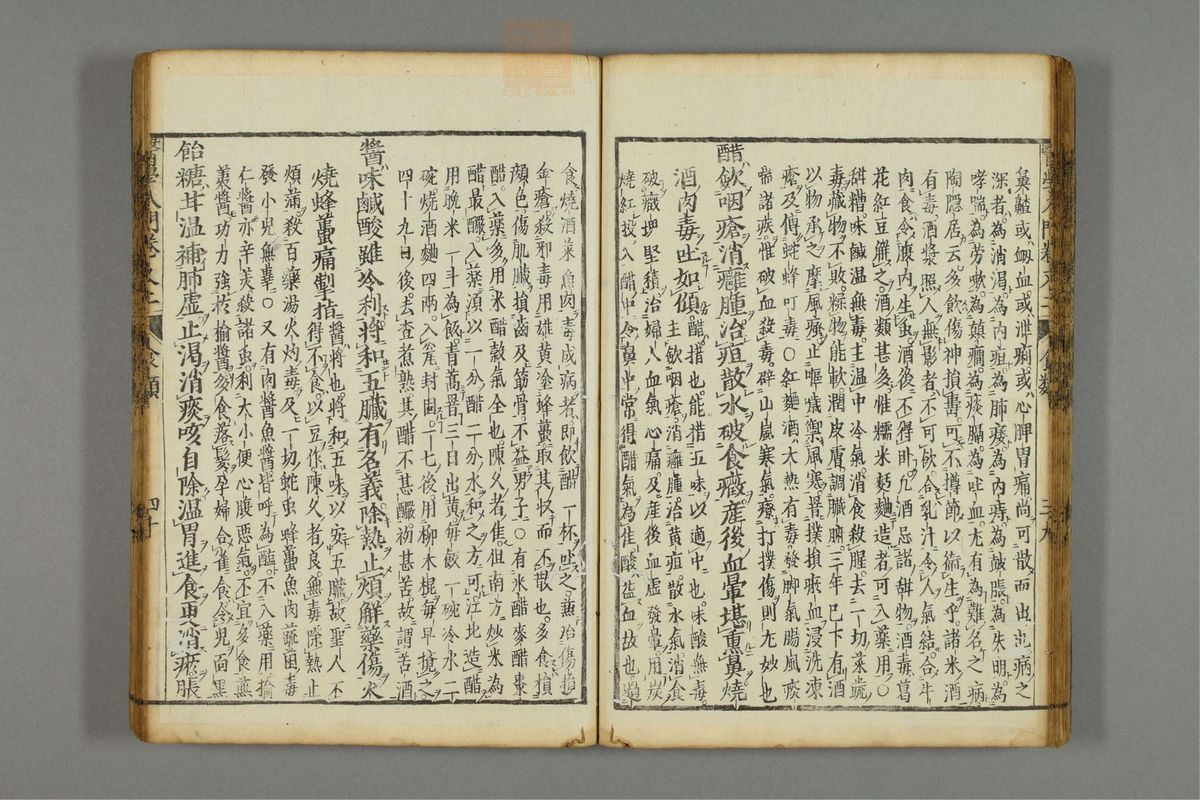 鼻齄或衂血或泄痢或心脾胃痛尚可散而出也病之
深者為消渴為內疸為肺痿為內痔為皷脹為失明為
哮喘為勞嗽為癲癇為痰膈為吐血尤有為難名之病
陶隱居云多飲傷神損壽可不撙節以衛生乎諸米酒
有毒酒漿照人無影者不可飲合乳汁令人氣結合牛
肉食令腹內生虫酒後不得卧凢酒忌諸甜物酒毒葛
花紅豆觧之酒類甚多惟糯米麪麯造者可入藥用○
酣糟味鹹温無毒主温中冷氣消食殺腥去一切菜蔬
毒藏物不敗糅物能軟潤皮膚調臟腑三年已下有酒
以物承之摩風瘙止嘔噦禦風寒暑撲損瘀血浸洗凍
瘡及傅蛇蜂叮毒○紅麯酒大熱有毒發脚氣腸風痰
喘諸疾惟破血殺毒辟山嵐寒氣療打撲傷則尤妙也
醋飲咽瘡消癰腫治疸散水破食癥産後血暈堪熏鼻燒
酒肉毒吐如傾
醋措也能措五味以適中也味酸無毒
主飲咽瘡消癰腫治黃疸散水氣消食
破癥塊堅積治婦人血氣心痛及産後血虛發暈用炭
燒紅投入醋中令鼻中常得醋氣為佳酸益血故也過
食燒酒菜魚肉毒成病者即飲醋一杯吐之兼治傷損
金瘡殺邪毒用雄黃塗蜂蠆取其收而不散也多食損
顏色傷肌臟損齒及筋骨不益男子○有米醋麥醋棗
醋入藥多用米醋穀氣全也陳久者佳但南方炒米為
醋最釅入藥須以一分醋二分水和之方可江北造醋
用晚米一斗為飯青蒿罯三日出黃每飯一碗冷水二
碗燒酒麯四兩入瓮封固二七後用柳木棍每早攪之
四十九日後去查煮熟其醋不甚釅初甚苦故謂苦酒
醬味鹹酸雖冷利將和五臟有名義除熱止煩解藥傷火
燒蜂蠆痛掣指
醬將也將和五味以安五臟故聖人不
得不食以豆作陳久者良無毒除熱止
煩滿殺百藥湯火灼毒及一切蛇虫蜂蠆魚肉蔬菌毒
發小兒無辜○又有肉醬魚醬皆呼為醢不入藥用榆
仁醬亦辛美殺諸虫利大小便心腹惡氣不宜多食蕪
荑醬功力強扵榆醬多食落髮孕婦合雀食令兒面黑
飴糖甘温補肺虛止渴消痰咳自除温胃進食更消瘀脹
醫學入門卷之二
食類
四十
三九